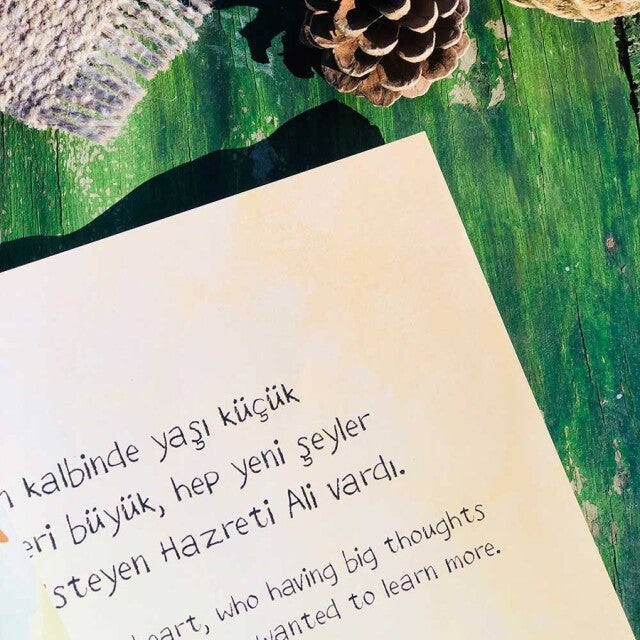 kalbinde yaşı küçük
büyük, hep yeni şeyler
Hazreti Ali vardı.
heart, who having big thoughts
wanted to learn more.